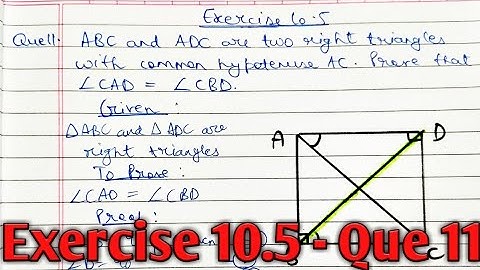 Exercise 10.5
Que11. ABC and ADC are two right triangles
with common hypotenuse AC. Prove that
∠CAD = ∠CBD.
Given:
△ABC and △ADC are
right triangles
To Prove:
∠CAD = ∠CBD
Proof:
A
D
Exercise 10.5 - Que 11